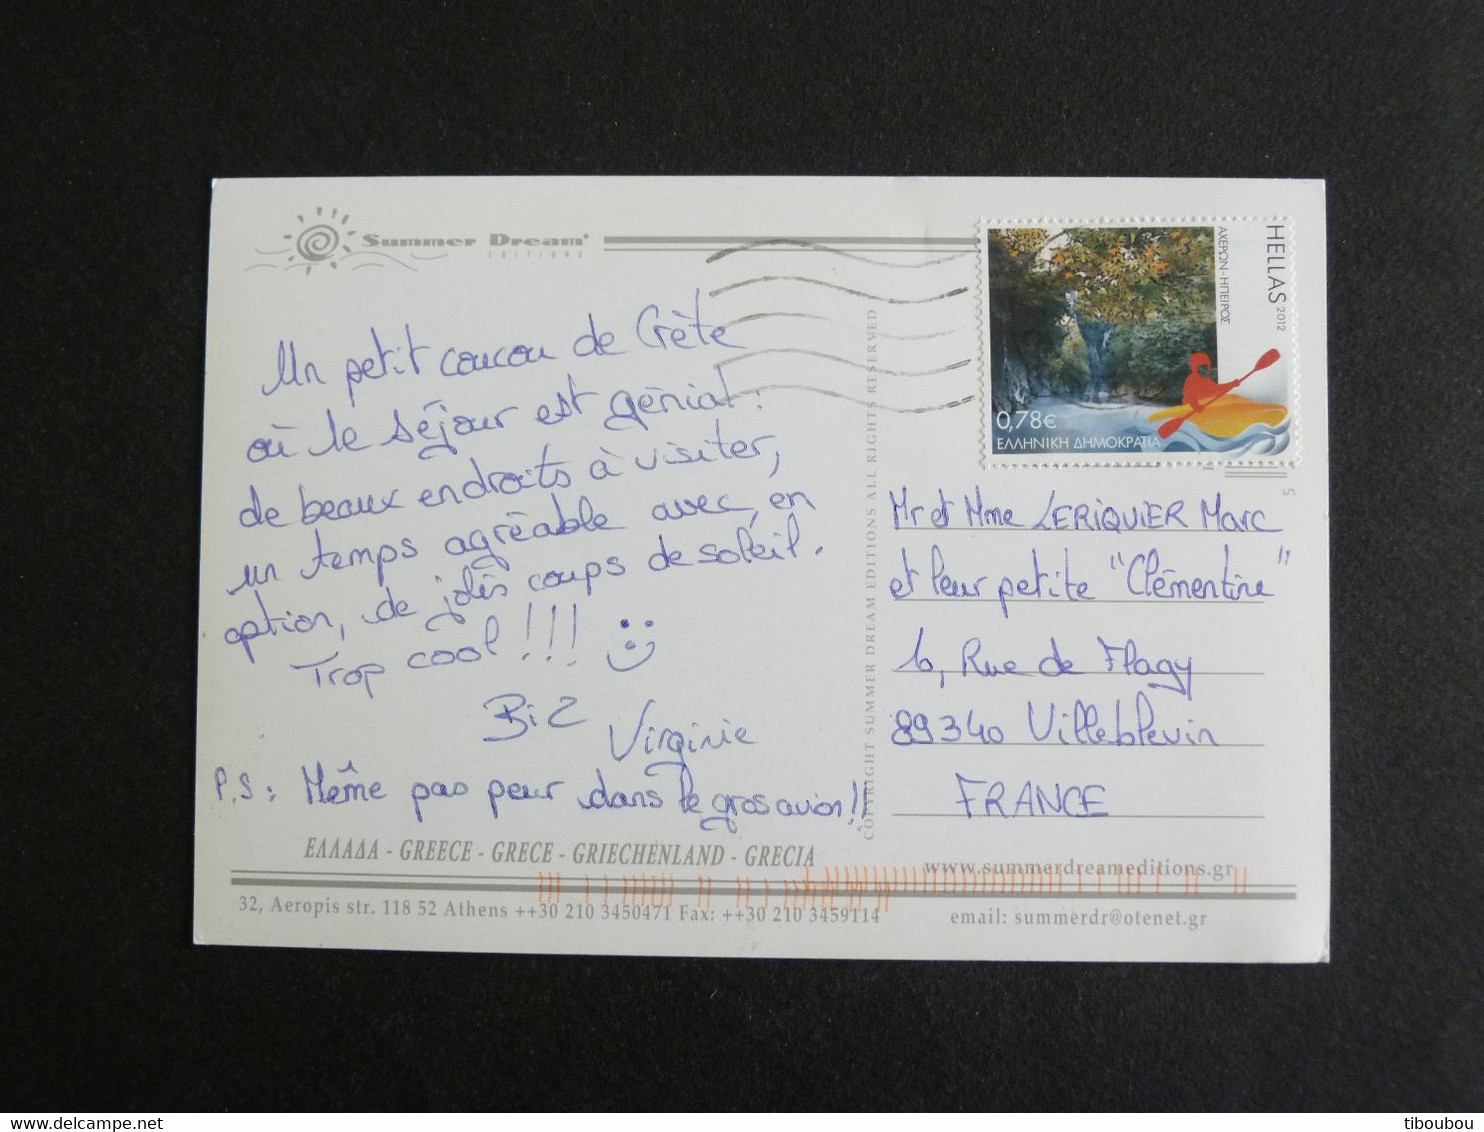 Summer Dream
EDITIONS
Un petit coucou de Crète
où le séjour est génial :
de beaux endroits à visiter,
un temps agréable avec, en
option, de jolis coups de soleil.
Trop cool !!!
Biz
Virginie
P.S : Même pas peur dans le gros avion !!
ΕΛΛΑΔΑ - GREECE - GRECE - GRIECHENLAND - GRECIA
32, Aeropis str. 118 52 Athens ++30 210 3450471 Fax: ++30 210 3459114
COPYRIGHT SUMMER DREAM EDITIONS ALL RIGHTS RESERVED
HELLAS 2012
ΑΧΕΡΩΝ - ΗΠΕΙΡΟΣ
0,78€
ΕΛΛΗΝΙΚΗ ΔΗΜΟΚΡΑΤΙΑ
5
Mr et Mme LERIQUIER Marc
et leur petite "Clémentine"
Rue de Flagy
89340 Villeblevin
FRANCE
www.summerdreameditions.gr
email: summerdr@otenet.gr
tiboubou / delcampe.net